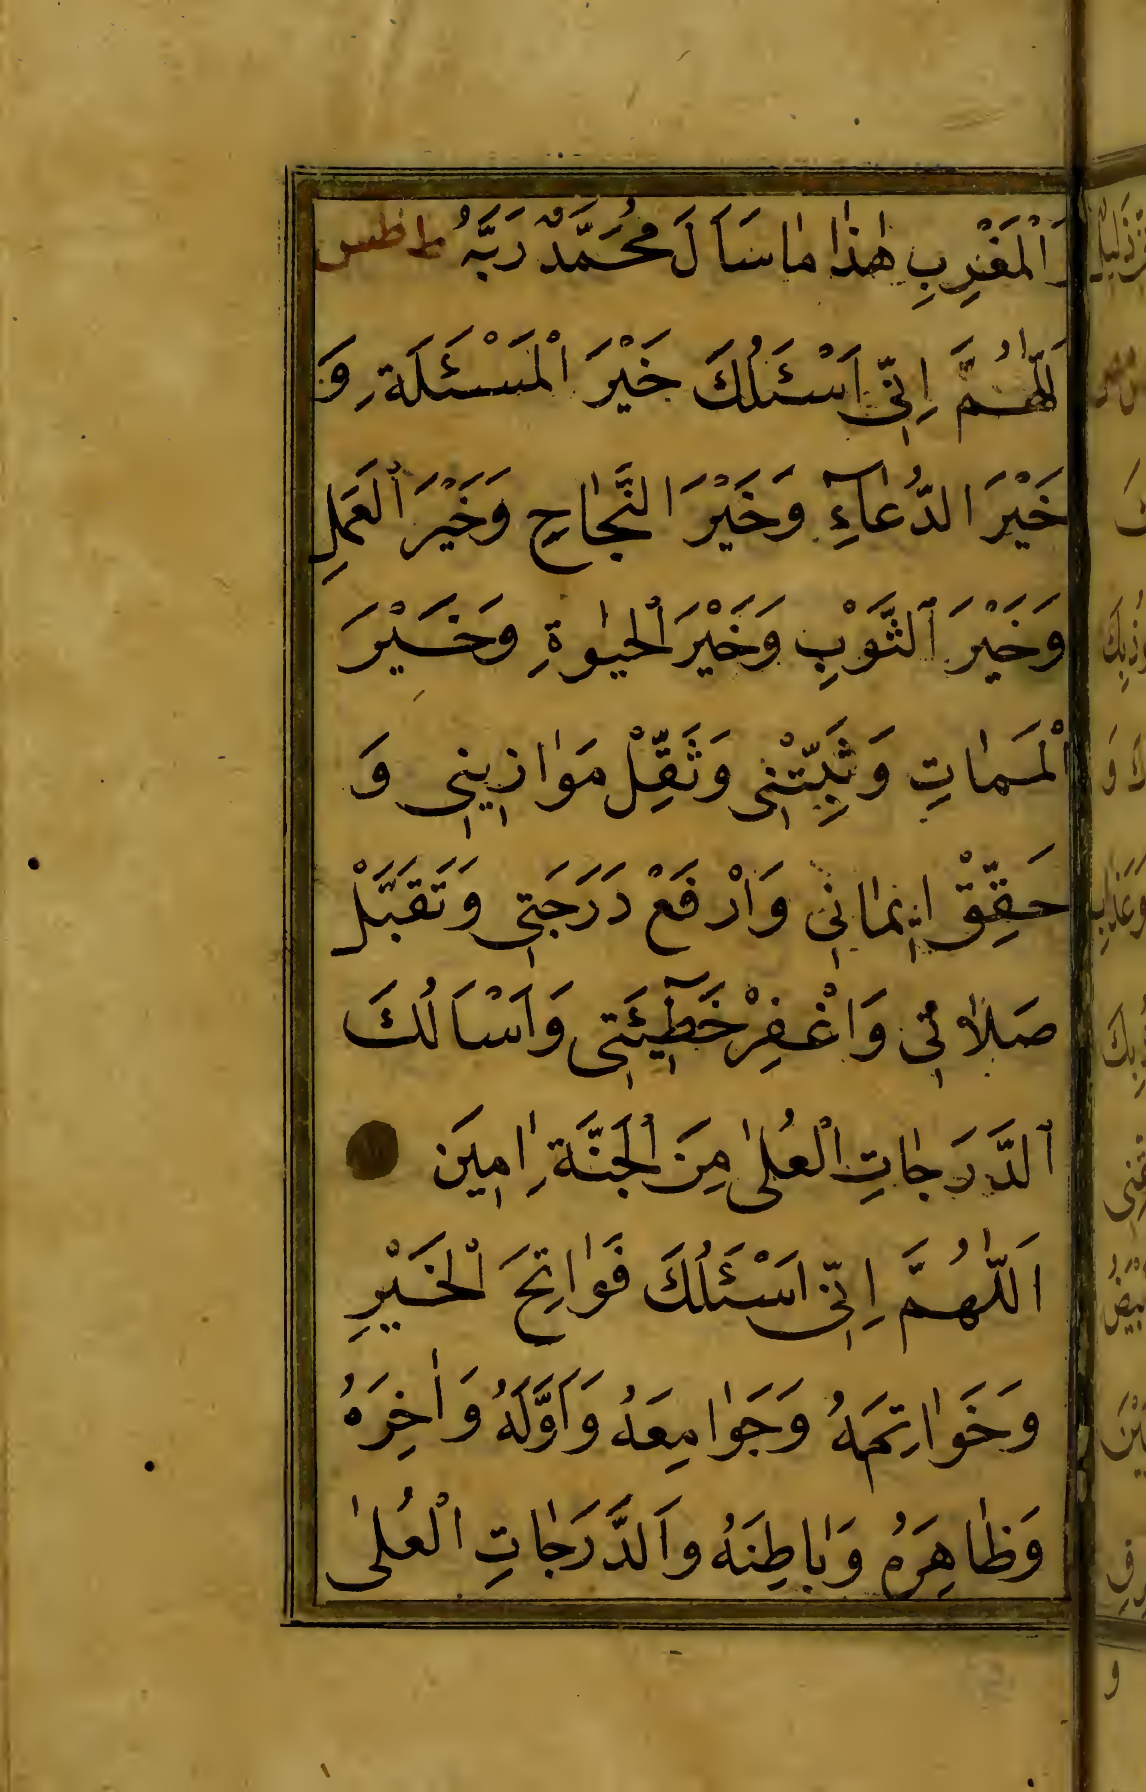 وَالْمَغْرِبِ هٰذَا مَا سَاَلَ مُحَمَّدٌ رَبَّهُ ط طس
اَللّٰهُمَّ اِنّٖى اَسْئَلُكَ خَيْرَ الْمَسْئَلَةِ وَ
خَيْرَ الدُّعَآءِ وَخَيْرَ النَّجَاحِ وَخَيْرَ الْعَمَلِ
وَخَيْرَ الثَّوْبِ وَخَيْرَ الْحَيٰوةِ وَخَيْرَ
الْمَمَاتِ وَثَبِّتْنٖى وَثَقِّلْ مَوَازٖينٖى وَ
حَقِّقْ اٖيمَانٖى وَارْفَعْ دَرَجَتٖى وَتَقَبَّلْ
صَلَاتٖى وَاغْفِرْ خَطٖٓيئَتٖى وَاَسْاَلُكَ
الدَّرَجَاتِ الْعُلٰى مِنَ الْجَنَّةِ اٰمٖينَ
اَللّٰهُمَّ اِنّٖى اَسْئَلُكَ فَوَاتِحَ الْخَيْرِ
وَخَوَاتِمَهُ وَجَوَامِعَهُ وَاَوَّلَهُ وَاٰخِرَهُ
وَظَاهِرَهُ وَبَاطِنَهُ وَالدَّرَجَاتِ الْعُلٰى